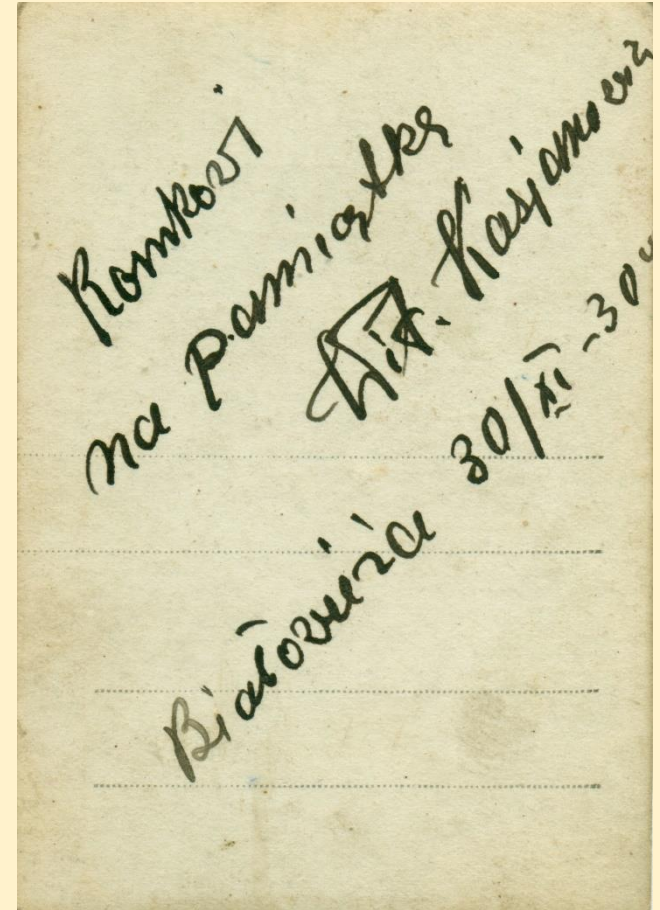 Romkowi
na pamiątkę
Wit. Kasjanowicz
Białowieża 30/XI-30